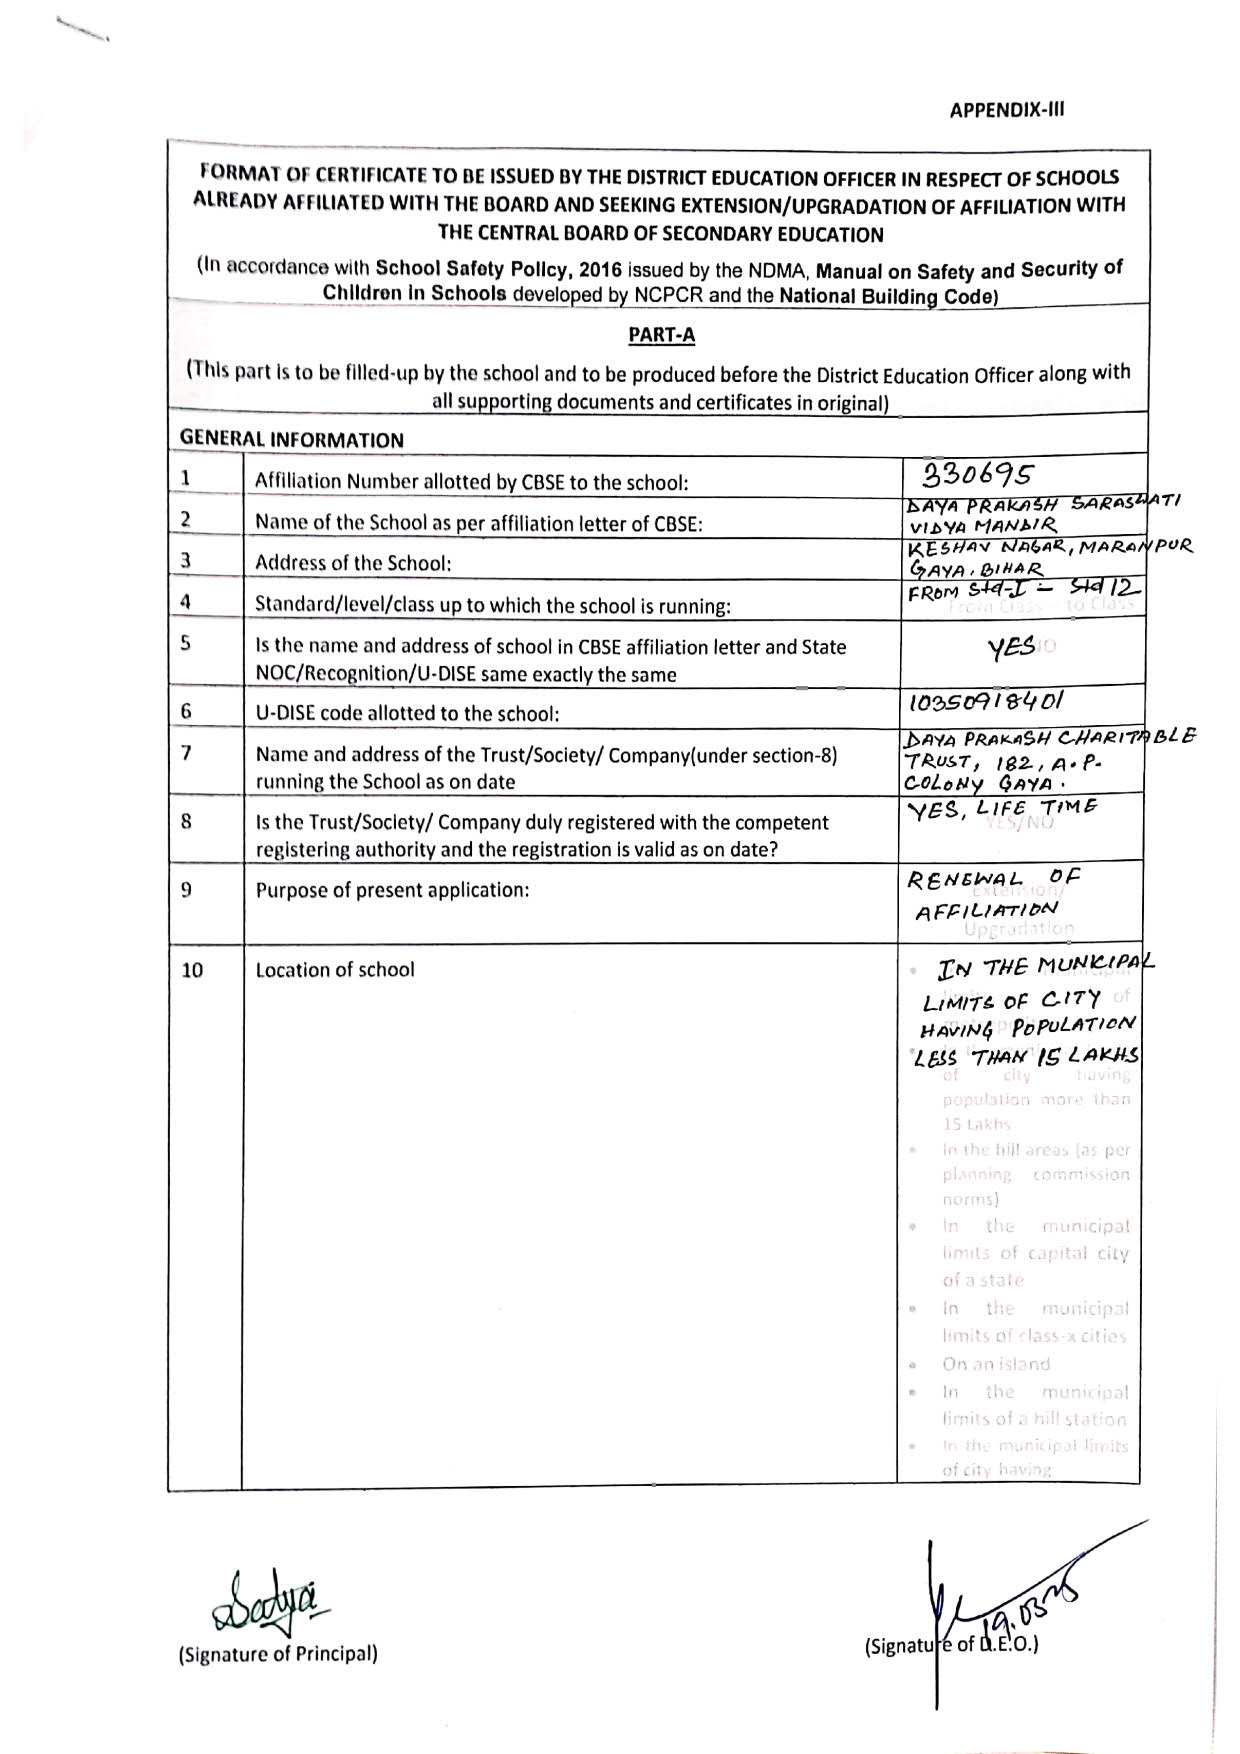 APPENDIX-III
FORMAT OF CERTIFICATE TO BE ISSUED BY THE DISTRICT EDUCATION OFFICER IN RESPECT OF SCHOOLS
ALREADY AFFILIATED WITH THE BOARD AND SEEKING EXTENSION/UPGRADATION OF AFFILIATION WITH
THE CENTRAL BOARD OF SECONDARY EDUCATION
(In accordance with School Safety Policy, 2016 issued by the NDMA, Manual on Safety and Security of
Children in Schools developed by NCPCR and the National Building Code)
PART-A
(This part is to be filled-up by the school and to be produced before the District Education Officer along with
all supporting documents and certificates in original)
GENERAL INFORMATION
1 Affiliation Number allotted by CBSE to the school: 330695
2 Name of the School as per affiliation letter of CBSE: DAYA PRAKASH SARASWATI
VIDYA MANDIR
3 Address of the School: KESHAV NAGAR, MARANPUR
GAYA. BIHAR
4 Standard/level/class up to which the school is running: FROM Std-I - Std 12
From Class - to Class
5 Is the name and address of school in CBSE affiliation letter and State
NOC/Recognition/U-DISE same exactly the same
YES
6 U-DISE code allotted to the school: 10350918401
7 Name and address of the Trust/Society/ Company(under section-8)
running the School as on date
DAYA PRAKASH CHARITABLE
TRUST, 182, A.P.
COLONY GAYA.
8 Is the Trust/Society/ Company duly registered with the competent
registering authority and the registration is valid as on date?
YES, LIFE TIME
YES/NO
9 Purpose of present application:
RENEWAL OF
Extension/
AFFILIATION
Upgradation
10 Location of school
IN THE MUNICIPAL
LIMITS OF CITY
of
HAVING POPULATION
LESS THAN 15 LAKHS
of city having
population more than
15 Lakhs
• In the hill areas (as per
planning commission
norms)
• In the municipal
limits of capital city
of a state
• In the municipal
limits of class-x cities
• On an island
• In the municipal
limits of a hill station
• In the municipal limits
of city having
Satya
(Signature of Principal)
19.03.25
(Signature of D.E.O.)